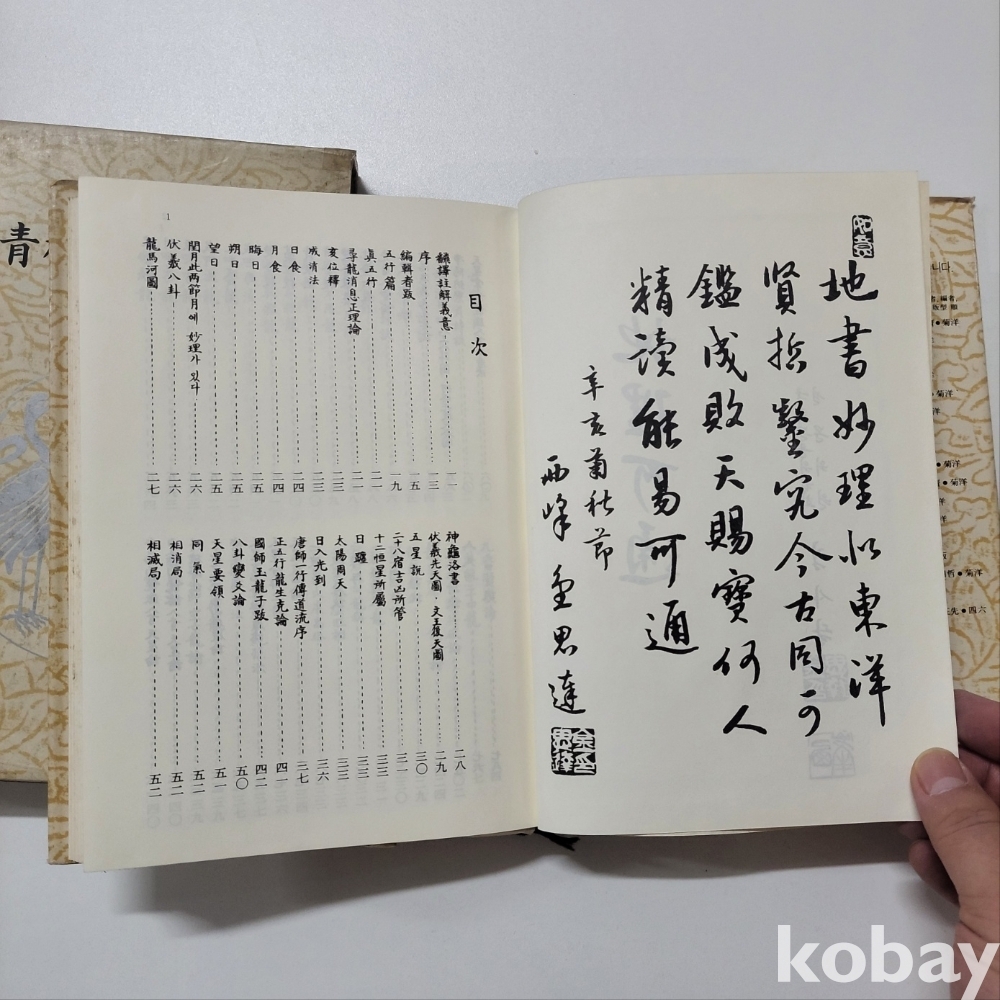 青
地書妙理似東洋
賢哲鑿究今古同可
鑑成敗天賜寶何人
精讀能易可通
辛亥菊秋節
西峰金思達
目次
飜譯註解義意 一
序 三
編輯者跋 一五
五行篇 一九
眞五行 二一
尋龍消息正理論 二一
亥位釋 二三
成消法 二三
日食 二四
月食 二四
晦日 二五
朔日 二五
望日 二五
閏月此两節月에 妙理가 있다 二六
伏羲八卦 二六
龍馬河圖 二七
神龜洛書 二八
伏羲先天圖・文王後天圖 二九
五星説 三〇
二十八宿吉凶所管 三一
十二恒星所屬 三二
日躔 三三
太陽周天 三三
日入光到 三六
唐師一行傳道流序 三七
正五行龍生克論 四一
國師玉龍子跋 四二
八卦變爻論 五〇
天星要領 五一
同氣 五二
相消局 五二
相滅局 五二
1
니다
菊洋
kobay